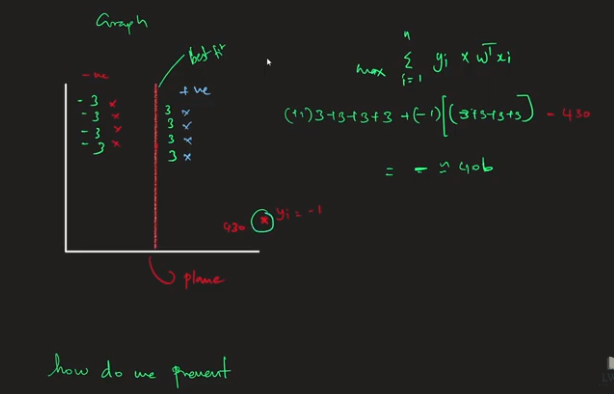 Graph
best fit
-ve
+ve
-3 x
-3 x
-3 x
-3 x
3 x
3 x
3 x
3 x
430 x yi = -1
plane
max n Σ i=1 yi x wᵀxi
(+1) 3+3+3+3 +(-1)[(-3+3+3+3)] - 430
= - ≈ 406
how do we prevent